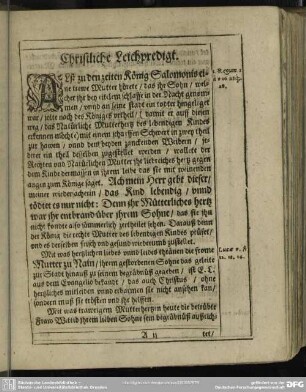 Christliche Leichpredigt.
ALß zu den zeiten König Salomonis ei-
ne trewe Mutter hörete, das ihr Sohn, wel-
cher ihr bey
der Nacht genom-
men, vnnd an seine statt ein todter hingeleget
war, solte nach des Königes vrtheil, damit er auß diesem
weg, das Natürliche Mutterhertz des lebendigen Kindes
erkennen möchte, mit einem scharffen Schwert in zwey theil
zur hawen, vnnd dem beyden zanckenden Weibern, je-
derer ein theil desselben zugestellet werden, wallete der
Rechten vnd Natürlichen Mutter ihr liebreiches hertz gegen
dem Kinde dermassen in ihrem leibe das sie mit weinenden
augen zum Könige saget. Ach mein Herr gebt dieser,
meiner wiedersacherin, das Kind lebendig, vnnd
tödtet es nur nicht: Denn ihr Mütterliches hertz
war ihr entbrand über ihrem Sohne, das sie ihn
nicht konte also jämmerlich zertheilet sehen. Daraus denn
der König die rechte Mutter des lebendigen Kindes prüfet,
vnd es derselben frisch vnd gesund wiederumb zustellet.
Mit was hertzlichen liebes vnnd leides thränen die fromme
Mutter zu Nain, ihrem gestorbenen Sohne das geleite
zur Stadt hinauß zu seinem begräbnüß gegeben, ist E. L.
aus dem Evangelio bekandt, das auch Christus, ohne
hertzliches mitleiden vnnd erbarmen sie nicht ansehen kan,
sondern muß sie trösten vnd ihr helffen.
Mit was traurigem Mutterhertzen heute die betrübte
Fraw Witwe ihrem lieben Sohne sein begräbnüß außrich-
A ij
tet,
1. Regum 3
Lucæ 7. v.
12. 13. 14.
DFG